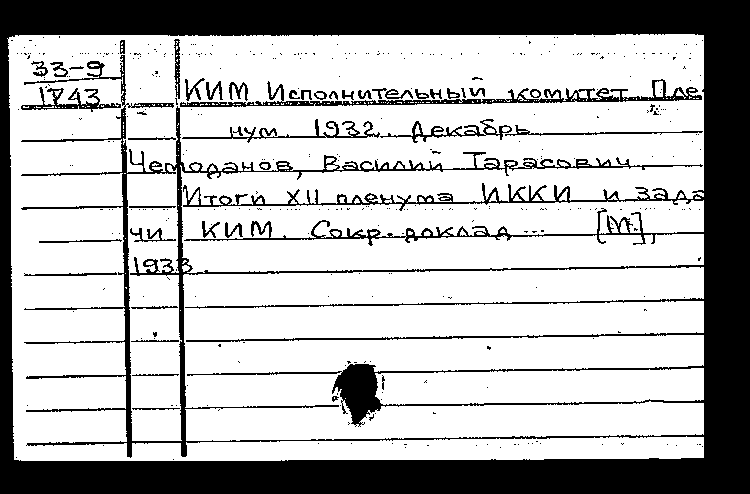 33-9
1743
КИМ Исполнительный комитет Пле-
нум. 1932. Декабрь
Чемоданов, Василий Тарасович.
Итоги XII пленума ИККИ и зада
чи КИМ. Сокр. доклад ... [М.],
1933.